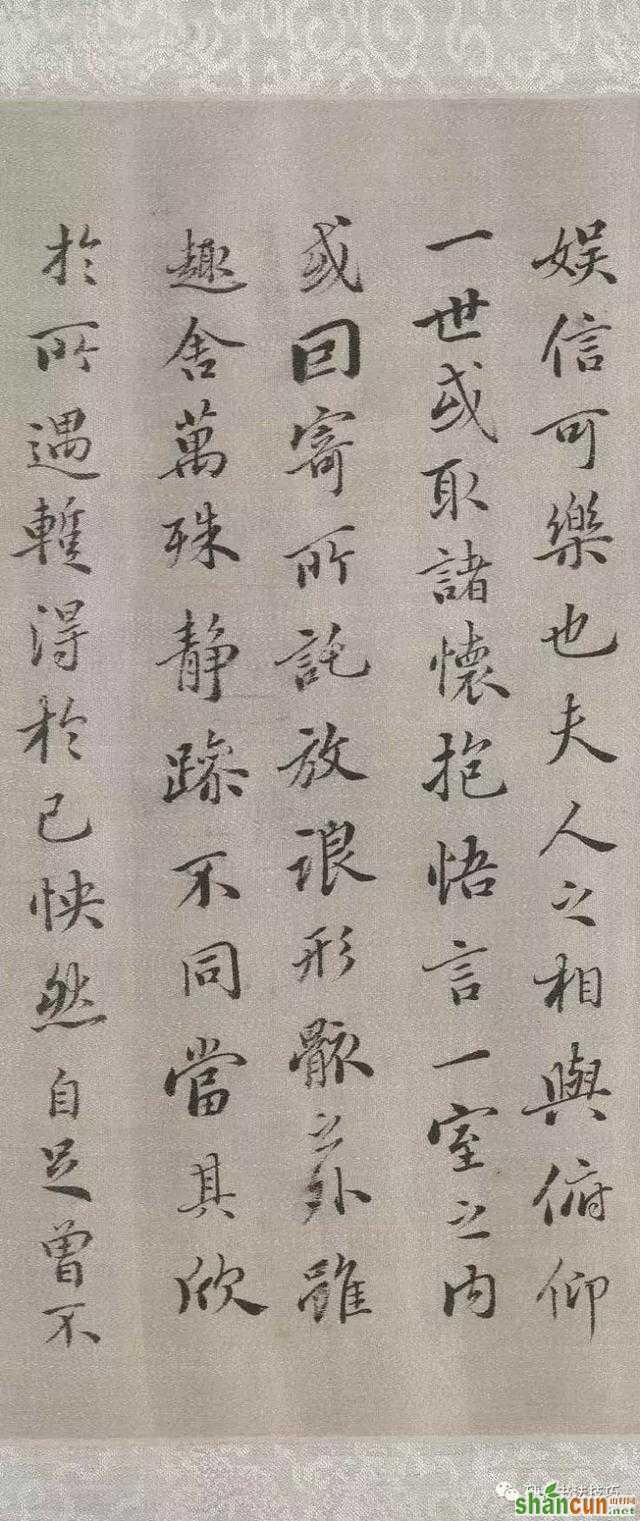 娱信可樂也夫人之相與俯仰
一世或取諸懷抱悟言一室之内
或回寄所託放浪形骸之外雖
趣舍萬殊静躁不同當其欣
於所遇暫得於己怏然自足曾不
shancun
山村网
.net